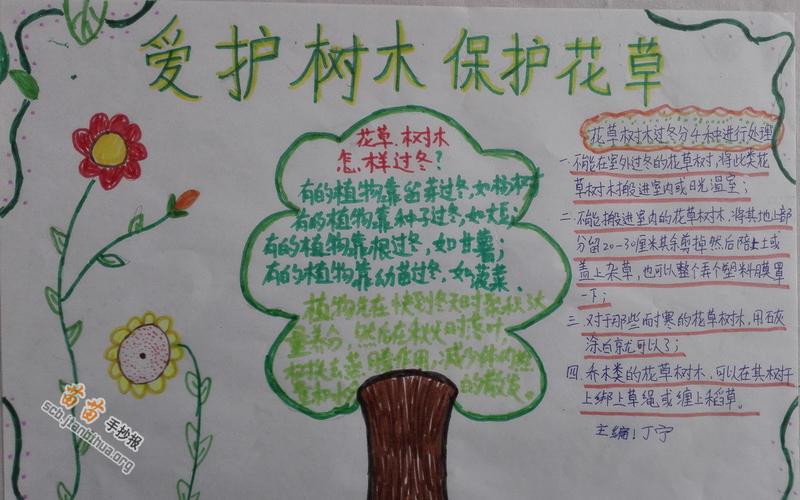 爱护树木 保护花草
花草.树木
怎样过冬?
有的植物靠留芽过冬,如杨树
有的植物靠种子过冬,如大豆;
有的植物靠根过冬,如甘薯;
有的植物靠幼苗过冬,如菠菜.
植物先在快到冬天时聚积大
量养分,然后在秋天时落叶,
的散发
花草树木过冬分4种进行处理
一.不能在室外过冬的花草树,将此类花
草树木搬进室内或日光温室;
二.不能搬进室内的花草树木,将其地上部
分留20-30厘米其余剪掉然后陪上土或
盖上杂草,也可以整个弄个塑料膜罩
一下;
三.对于那些耐寒的花草树木,用石灰
涂白就可以了;
四.乔木类的花草树木,可以在其树干
上绑上草绳或缠上稻草。
主编:丁宁
苗苗手抄报
scb.jianbihua.org